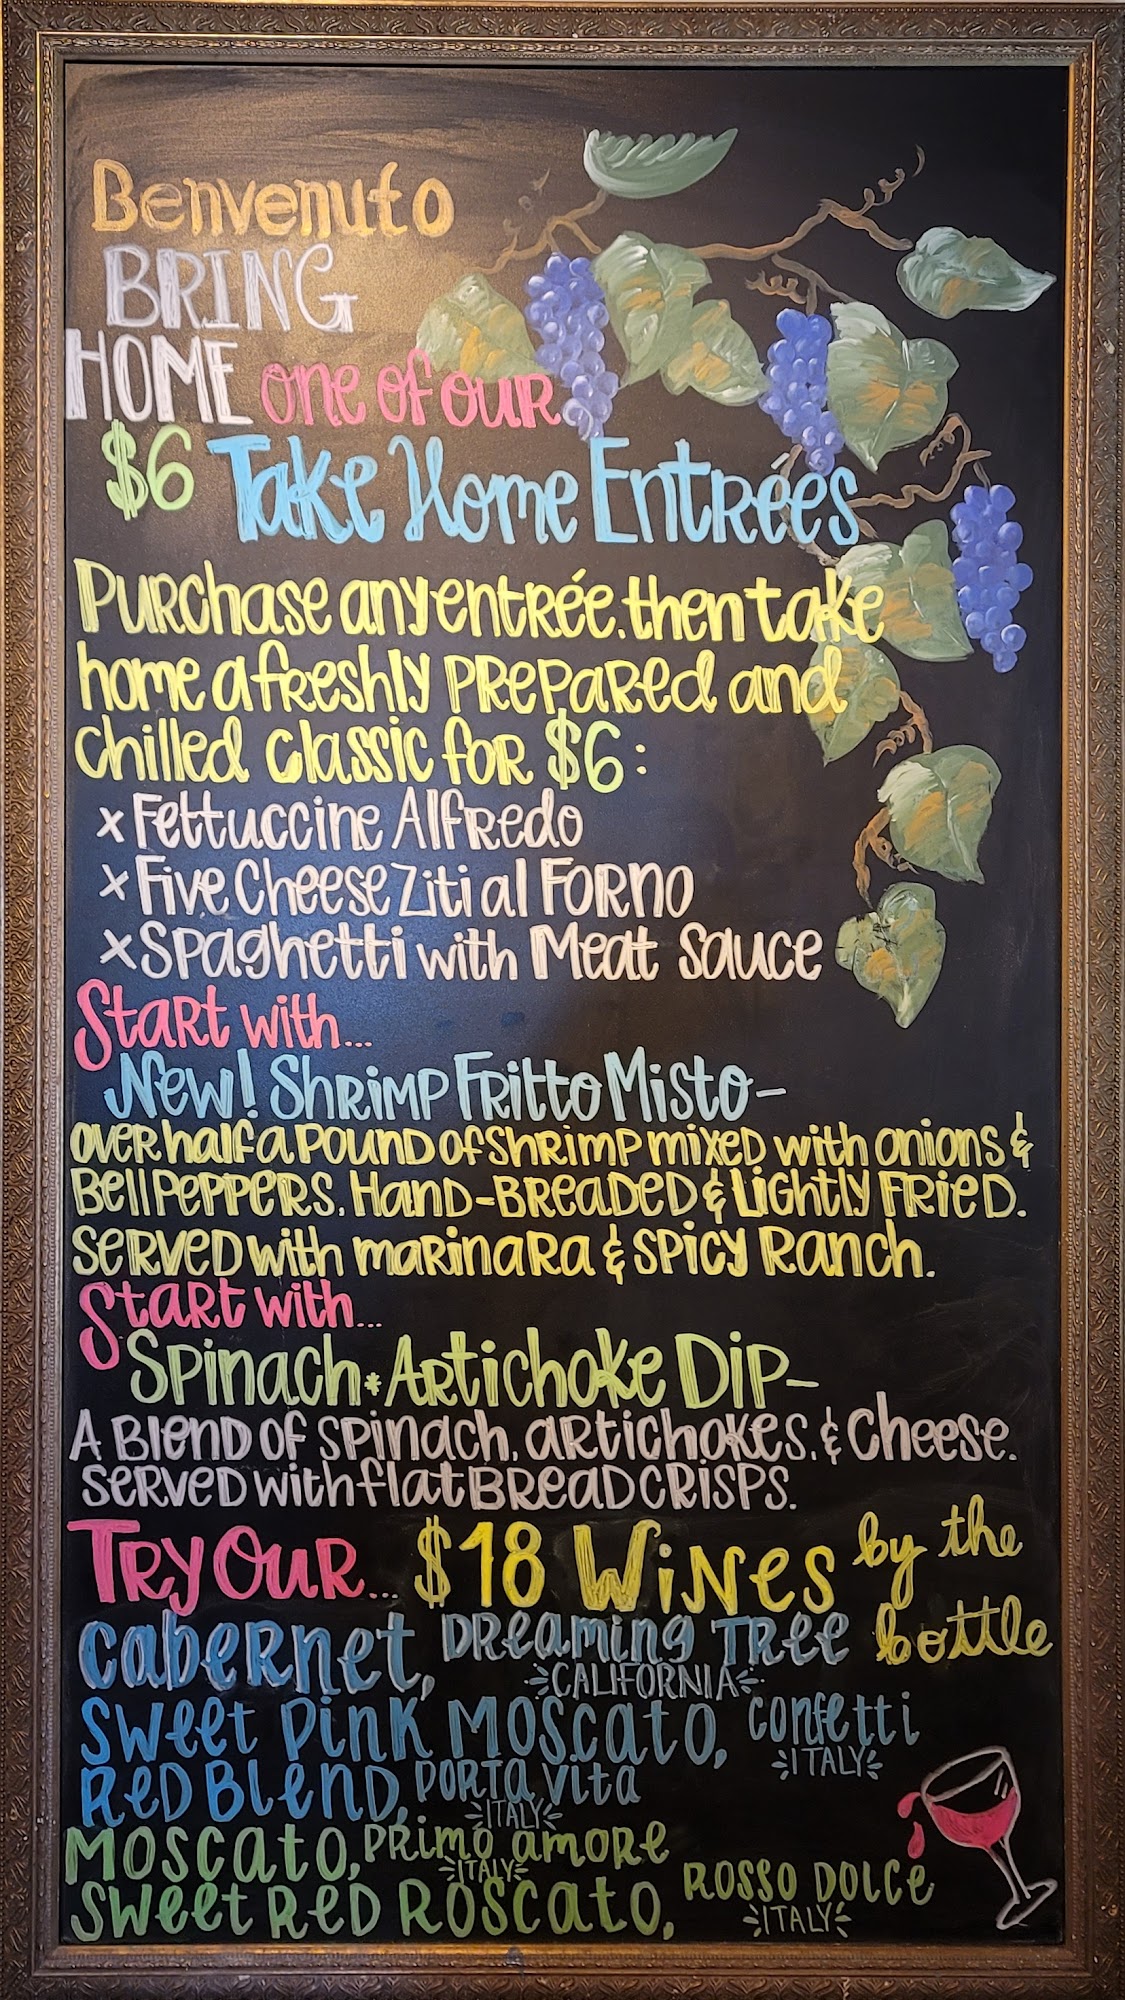 Benvenuto
BRING
HOME one of our
$6 Take Home Entrées
Purchase any entrée, then take
home a freshly prepared and
chilled classic for $6:
x Fettuccine Alfredo
x Five Cheese Ziti al Forno
x Spaghetti with Meat Sauce
Start with...
New! Shrimp Fritto Misto-
over half a pound of shrimp mixed with onions &
Bell Peppers. Hand-Breaded & Lightly Fried.
Served with marinara & spicy Ranch.
Start with...
Spinach • Artichoke Dip-
A Blend of spinach, artichokes, & cheese.
Served with flatbread crisps.
Try Our... $18 Wines by the
bottle
Cabernet, Dreaming Tree
CALIFORNIA
Sweet Pink Moscato, Confetti
ITALY
Red Blend, Porta Vita
ITALY
Moscato, Primo amore
ITALY
Sweet Red Roscato, Rosso Dolce
ITALY